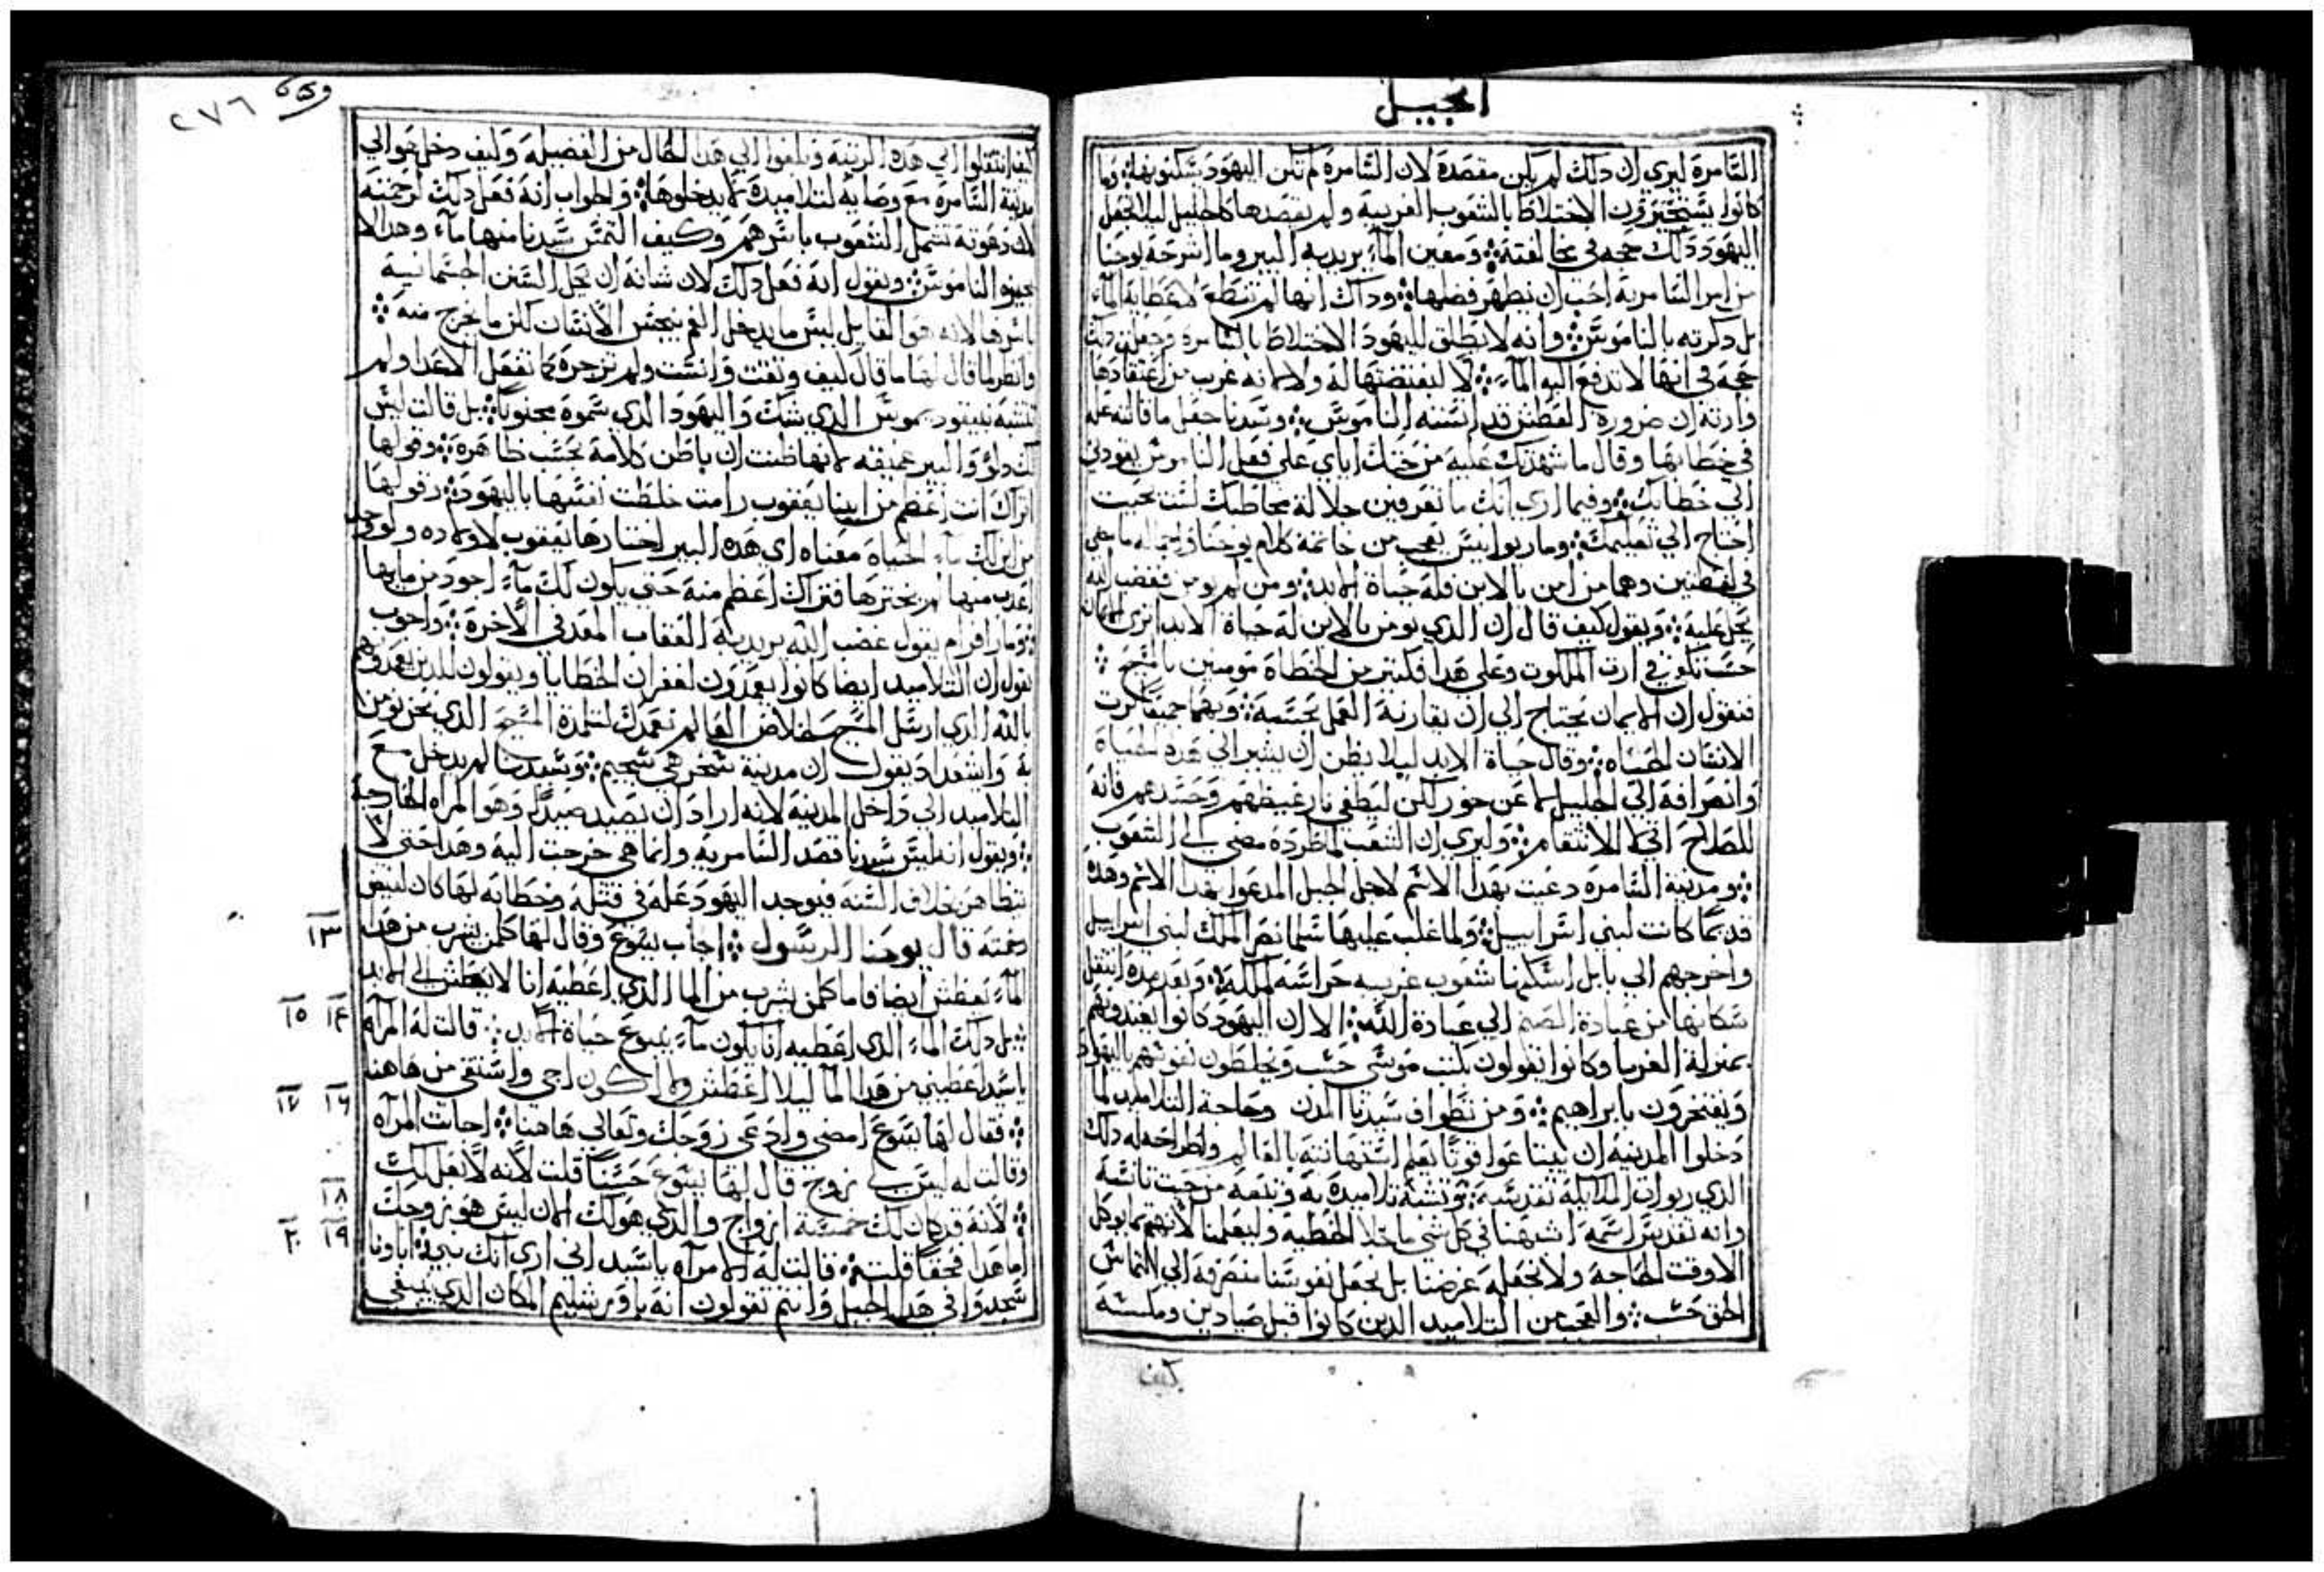 انجيل
السامرة ليري ان ذلك لم يكن مقصده لان السامرة لم تكن اليهود تسكنونها وما
كانوا يستجيزون الاختلاط بالشعوب الغريبة ولم يقصدها كالجليل ليلا يجعل
اليهود ذلك حجه في مخالفته ومعين الماء يريد به البير وما اشرحه يوحنا
من امر السامرية احب ان يظهر فضلها وذاك انها لم تنقطع لاعطايه الماء
بل ذكرته بالناموس وانه لا يطلق لليهود الاختلاط بالسامرة وجعلت ذلك
حجة في انها لا تدفع اليه الماء لا لبغضتها له ولا لانه غريب من اعتقادها
وارته ان ضرورة العطش قد انسته الناموس وسيدنا جعل ما قالته عله
في خطابها وقال ما شهدتك عليه من حثك اياي علي فعل الناموس يعودني
الي خطابك وفيما اري انك ما تعرفين جلالة مخاطبك لست بحيت
احتاج الي تعليمك ومار يوانيس يعجب من خاتمة كلام يوحنا
في لفظتين وهما من امن بالابن فله حياة الابد ومن لم يومن فغضب الله
يحل عليه ونقول كيف قال ان الذي يومن بالابن له حياة الابد اتري الايمان
حسب يكفي في ارت الملكوت وعلي هذا فكتير من الخطاة مومنين بالمسيح
فنقول ان الايمان يحتاج الي ان يقارنه العمل بحسبه وبهما جميعا يرت
الانسان الحياه وقال حياة الابد ليلا يظن انه يشير الي هذه الحياة
وانصرافه الي الجليل لا عن خور لكن ليطفي نار غيظهم وحسدهم فانه
للصلاح اتي لا للانتقام وليري ان الشعب لما طرده مضي الي الشعوب
ومدينة السامرة دعيت بهذا الاسم لاجل الجبل المدعو بهذا الاسم وهذه
قديما كانت لبني اسراييل ولما غلب عليها شلمانصر الملك لبني اسراييل
واخرجهم الي بابل اسكنها شعوب غريبه حراسه لملكه وبعد مده انتقل
سكانها من عبادة الصنم الي عبادة الله الا ان اليهود كانوا يعبدونهم
بمنزلة الغربا وكانوا يقولون بكتب موسي حسب ويخلطون نفوسهم باليهود
ويفتخرون بابراهيم ومن تطواف سيدنا المدن وحاجة التلاميد لما
دخلوا المدينة ان يبتاعوا قوتا يعلم استهانته بالعالم واطراحه له ذلك
الذي ربوات الملايكة تقدسه وتشبه تلاميذه به وتتبعه من حيت تانسه
وانه تقدس اسمه اشبهنا في كل شي ما خلا الخطيه وليعلمنا لا نهتم بما يوكل
الا وقت الحاجة ولا نجعله غرضنا بل نجعل نفوسنا منصرفة الي التماس
الحق حسب والعجب من التلاميد الذين كانوا قبل صيادين ومكسه
كيف
٢٧٦
كيف انتقلوا الي هذه الرتبة وبلغوا الي هذا الحال من الفضيلة وكيف دخل هو الي
مدينة السامرة مع وصايه لتلاميده لا يدخلوها والجواب انه فعل ذلك لرحمته
لان دعوته تشمل الشعوب باسرهم وكيف التمس سيدنا منها ماء وهذا لا
يجيزه الناموس ونقول انه فعل ذلك لان شانه ان يحل السنن الجسمانية
باسرها لانه هو القايل ليس ما يدخل الفم ينجس الانسان لكن ما يخرج منه
وانظر لما قال لها ما قال كيف وقفت وانست ولم تزجره كما تفعل الاعدا ولم
تتشبه بنيقوديموس الذي شك واليهود الذي سموه مجنونا بل قالت ليس
لك دلو والبير عميقه لانها ظنت ان باطن كلامه بحسب ظاهره وقولها
اتراك انت اعظم من ابينا يعقوب رامت خلطت نفسها باليهود وقولها
من اين لك ماء الحياة معناه اي هذه البير اختارها يعقوب لاولاده ولو وجد
اعذب منها لم يخترها فتراك اعظم منه حتي يكون لك ماء اجود من مايها
ومار افرام يقول غضب الله يريد به العقاب المعد في الاخرة واجوب
يقول ان التلاميد ايضا كانوا يعمدون لغفران الخطايا ويقولون للدين يعمدوهم
بالله الذي ارسل المسيح لخلاص العالم نعمدك لتلمدة المسيح الذي نحن نومن
به واشعداد يقول ان مدينة شخر هي شجيم وسيدنا لم يدخل مع
التلاميد الي داخل المدينة لانه اراد ان يصيد صيدا وهو المراه الخارجة
ونقول انه ليس سيدنا قصد السامرية وانما هي خرجت اليه وهذا حتي لا
يتظاهر بخلاف السنه فيوجد اليهود عله في قتله وخطابه لها كان لبيض
دعته قال يوحنا الرسول اجاب يسوع وقال لها كلمن يشرب من هذا
الماء يعطش ايضا فاما كلمن يشرب من الما الذي اعطيه انا لا يعطش الي الابد
بل ذلك الماء الذي اعطيه انا يكون ماء ينبوع حياة الابد قالت له المرآه
يا سيد اعطيني من هذا الما ليلا اعطش ولا اكون اجي واستقي من هاهنا
فقال لها يسوع امضي وادعي زوجك وتعالي هاهنا اجابت المرآه
وقالت له ليس لي زوج قال لها يسوع حسنا قلت لانه لا بعل لك
لانه قد كان لك خمسة ازواج والذي هو لك الان ليس هو زوجك
اما هذا فحقا قلت قالت له الامرآه يا سيد اني اري انك نبي اباونا
سجدوا في هذا الجبل وانتم تقولون انه باورشليم المكان الذي ينبغي
١٣
١٤ ١٥
١٦ ١٧
١٨
١٩ ٢٠